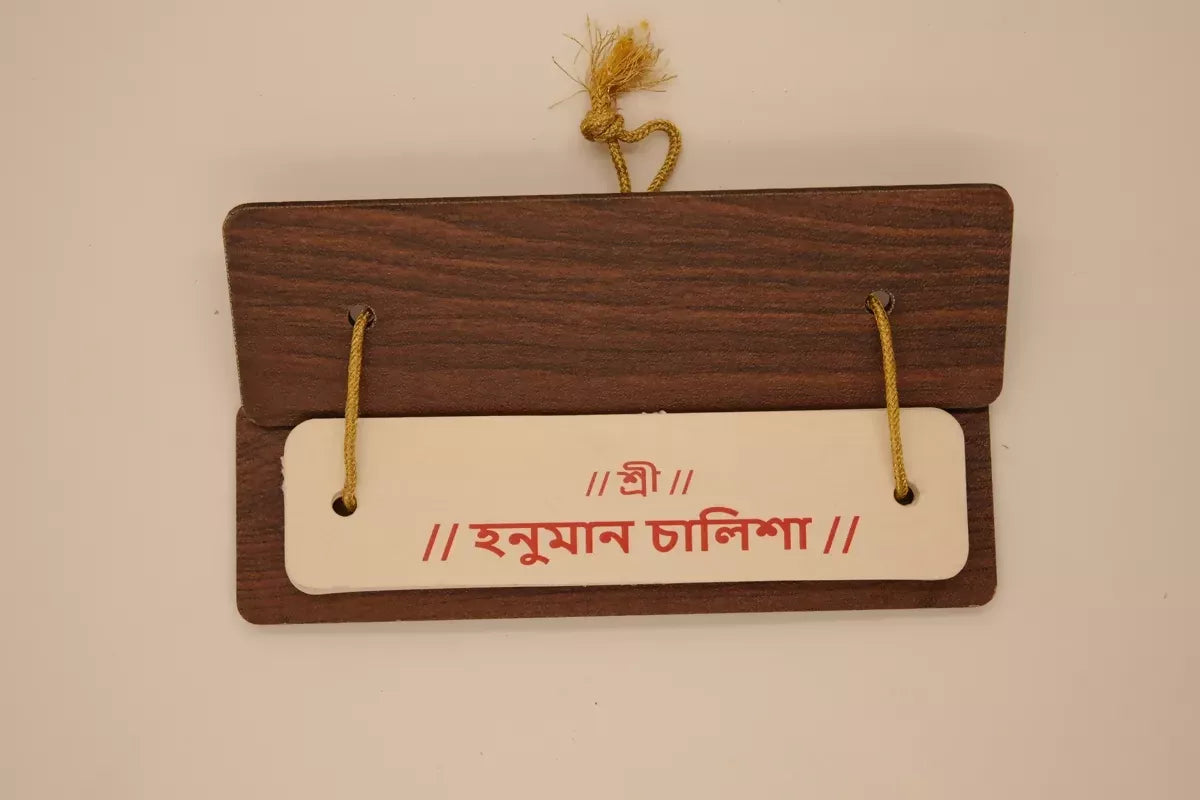 // শ্রী //
// হনুমান চালিশা //